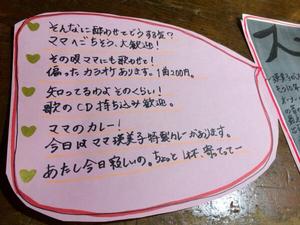 そんなに酔わせてどうする気?
ママへごちそう、大歓迎!
その唄ママにも歌わせて!
偏ったカラオケあります。1曲200円。
知ってるわよそのくらい!
歌のCD持ち込み歓迎。
ママのカレー!
今日はママ瑛美子特製カレーがあります。
あたし今日寂しいの。ちょっと1杯、寄ってってー
ス